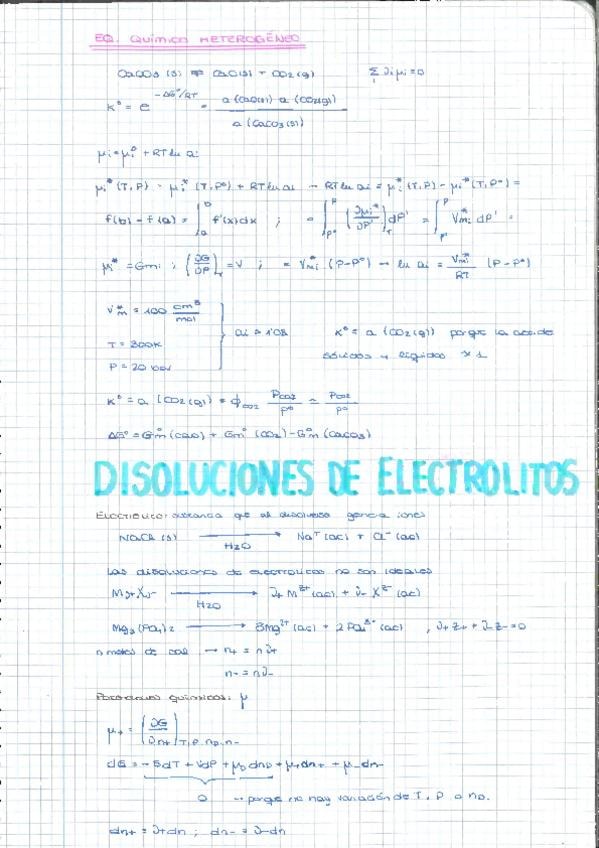 EQ. QUÍMICO HETEROGÉNEO
CaCO3 (s) ⇌ CaO(s) + CO2(g)    Σ νi μi = 0
K° = e^(-ΔG°/RT) = a(CaO(s)) a(CO2(g)) / a(CaCO3(s))
μi = μi° + RT ln ai
μi*(T,P) - μi*(T,P°) + RT ln ai → RT ln ai = μi*(T,P) - μi*(T,P°) =
f(b) - f(a) = ∫_a^b f'(x)dx ; = ∫_P°^P (∂μi*/∂P')_T dP' = ∫_P°^P V*mi dP' =
μi* = Gmi ; (∂G/∂P)_T = V ; = V*mi (P-P°) → ln ai = V*mi/RT (P-P°)
V*m = 100 cm³/mol
T = 300K
P = 20 bar
ai ≈ 1'02
K° = a(CO2(g)) porque la a de
sólidos y líquidos ≈ 1
K° = a(CO2(g)) = ϕCO2 PCO2/P° ≃ PCO2/P°
ΔG° = G°m(CaO) + G°m(CO2) - G°m(CaCO3)
DISOLUCIONES DE ELECTROLITOS
Electrolito: sustancia que al disolverse genera iones
NaCl (s) →(H2O) Na⁺(ac) + Cl⁻(ac)
Las disoluciones de electrolitos no son ideales
Mν+Xν- →(H2O) ν+ M^Z+(ac) + ν- X^Z-(ac)
Mg3(PO4)2 → 3Mg²⁺(ac) + 2PO4³⁻(ac) , ν+ Z+ + ν- Z- = 0
n moles de sal → n+ = nν+
n- = nν-
Potenciales químicos: μ
μ+ = (∂G/∂n+)T,P,nD,n-
dG = -SdT + VdP + μD dnD + μ+dn+ + μ-dn-
0 → porque no hay variación de T, P o nD.
dn+ = ν+dn ; dn- = ν-dn